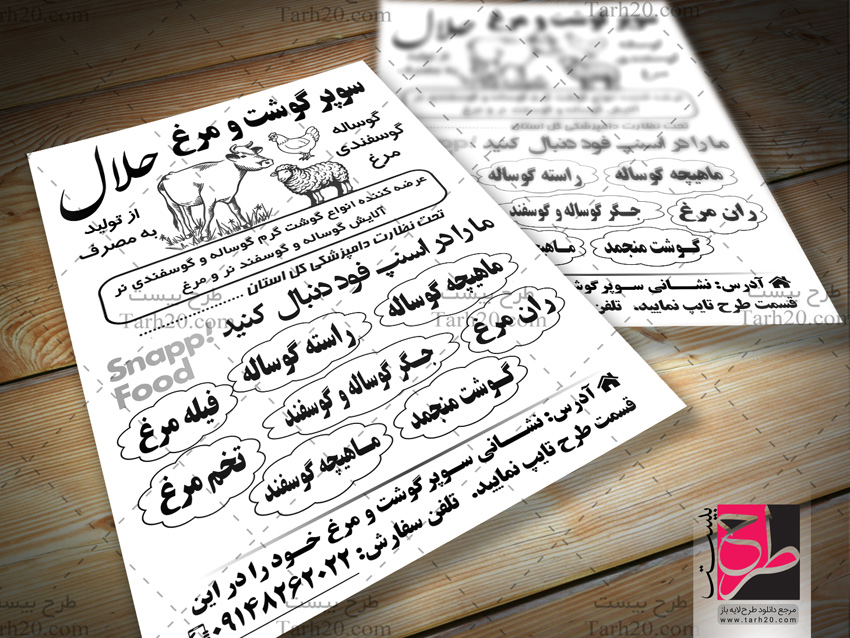 سوپر گوشت و مرغ
حلال
گوساله
گوسفندی
مرغ
از تولید
به مصرف
عرضه کننده انواع گوشت گرم گوساله و گوسفندی نر
آلایش گوساله و گوسفند نر و مرغ
تحت نظارت دامپزشکی کل استان
ما را در اسنپ فود دنبال کنید
Snapp!
Food
ماهیچه گوساله
راسته گوساله
ران مرغ
فیله مرغ
جگر گوساله و گوسفند
گوشت منجمد
تخم مرغ
ماهیچه گوسفند
آدرس: نشانی سوپر گوشت و مرغ خود را در این
قسمت طرح تایپ نمایید. تلفن سفارش: ۰۹۱۴۸۲۶۲۰۲۲
سوپر گوشت و مرغ حلال
تحت نظارت دامپزشکی کل استان
ما را در اسنپ فود دنبال کنید
ماهیچه گوساله
راسته گوساله
ران مرغ
جگر گوساله و گوسفند
گوشت منجمد
آدرس: نشانی سوپر
قسمت طرح تایپ نمایید.
طرح بیست
Tarh20.com
طرح بیست
مرجع دانلود طرح لایه باز
www.tarh20.com